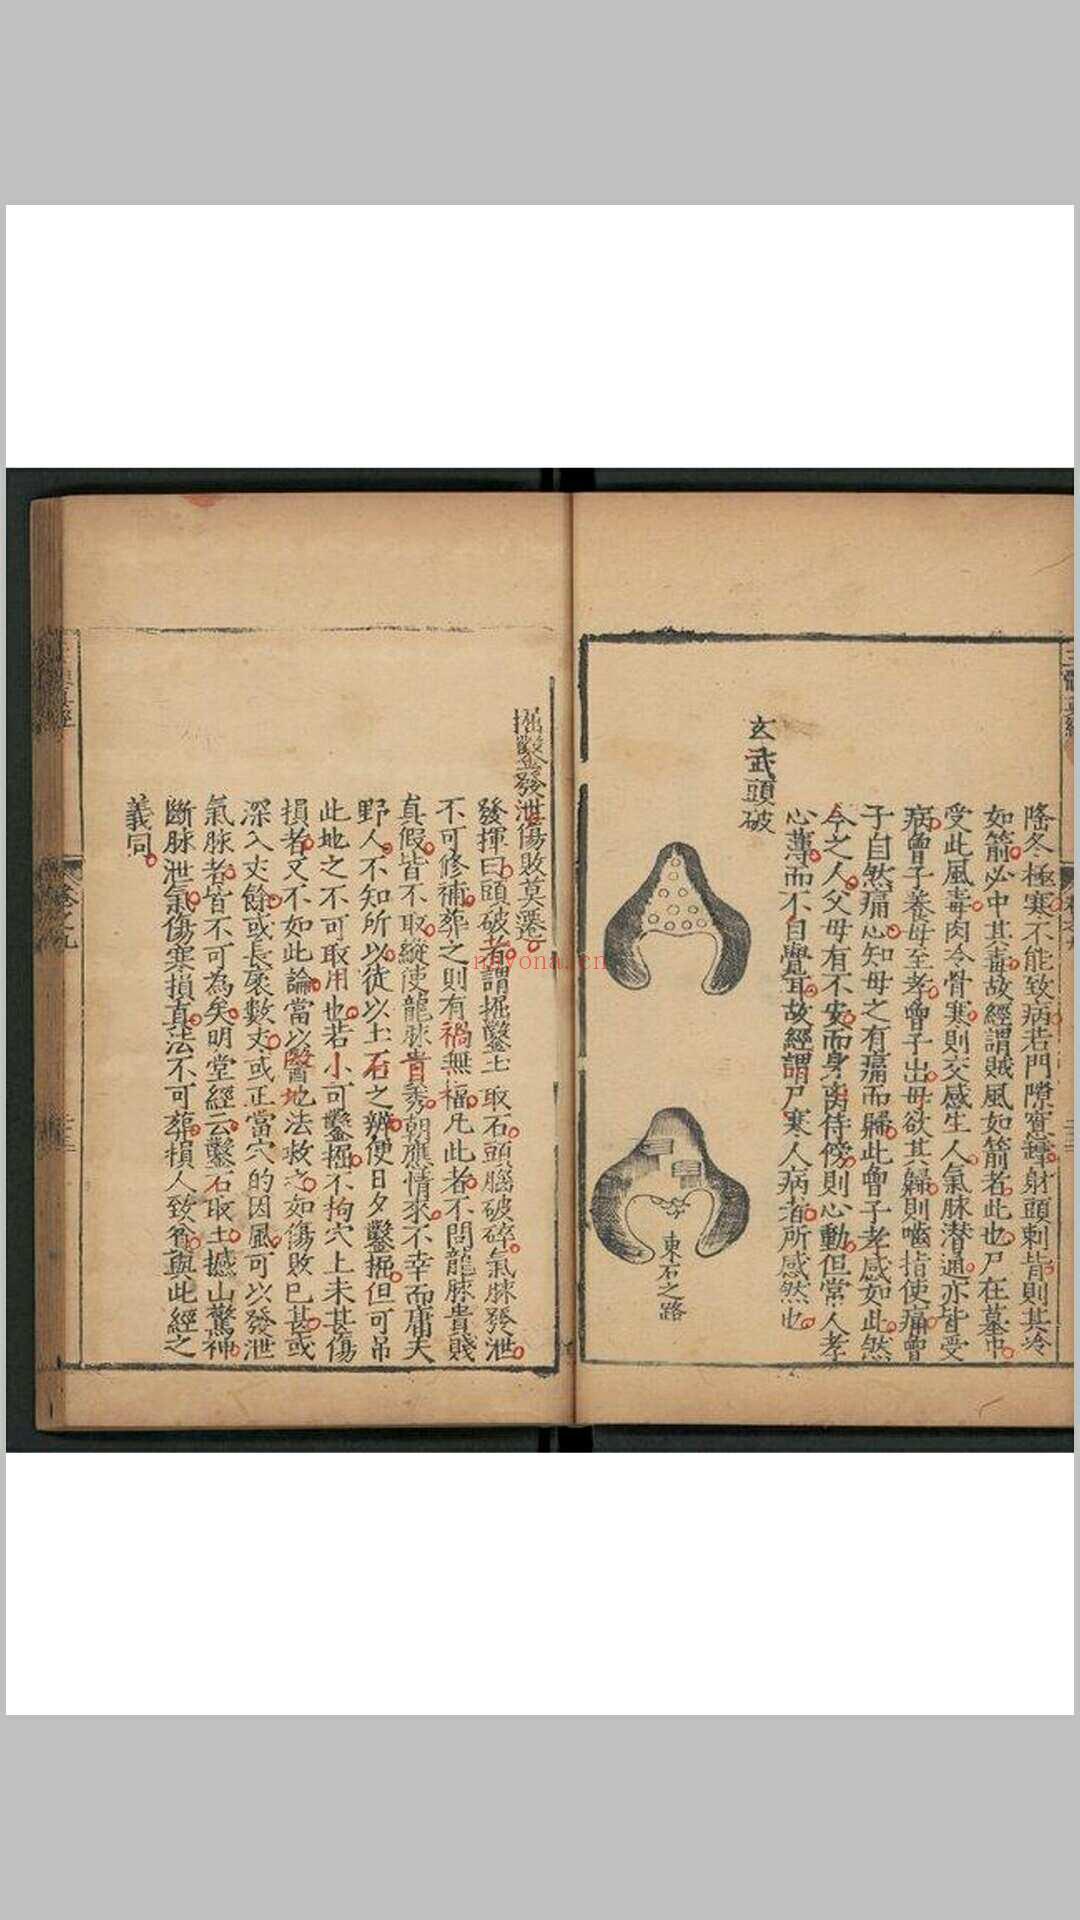 隆冬極寒不能致病若門隙竅罅射頭刺背則其冷
如箭必中其毒故經謂賊風如箭者此也尸在墓中
受此風毒肉冷骨寒則交感生人氣脉潜通亦皆受
病曾子養母至孝曾子出母欲其歸則嚙指使痛曾
子自然痛心知母之有痛而歸此曾子孝感如此然
今之人父母有不安而身離侍傍則心動但常人孝
心薄而不自覺耳故經謂尸寒人病者所感然也
玄武頭破
東石之路
掘鑿發泄傷敗莫遷
發揮曰頭破者謂掘鑿土取石頭腦破碎氣脉發泄
不可修補葬之則有禍無福凡此者不問龍脉貴賤
真假皆不取縱使龍脉貴秀朝應情來不幸而庸夫
野人不知所以徒以土石之辨便日夕鑿掘但可吊
此地之不可取用也若小可鑿掘不拘穴上未甚傷
損者又不如此論當以醫地法救之如傷敗已甚或
深入丈餘或長袤數丈或正當穴的因風可以發泄
氣脉者皆不可為矣明堂經云鑿石取土撼山驚神
斷脉泄氣傷寒損真法不可葬損人致
與此經之
義同
卷之九
nayona.cn